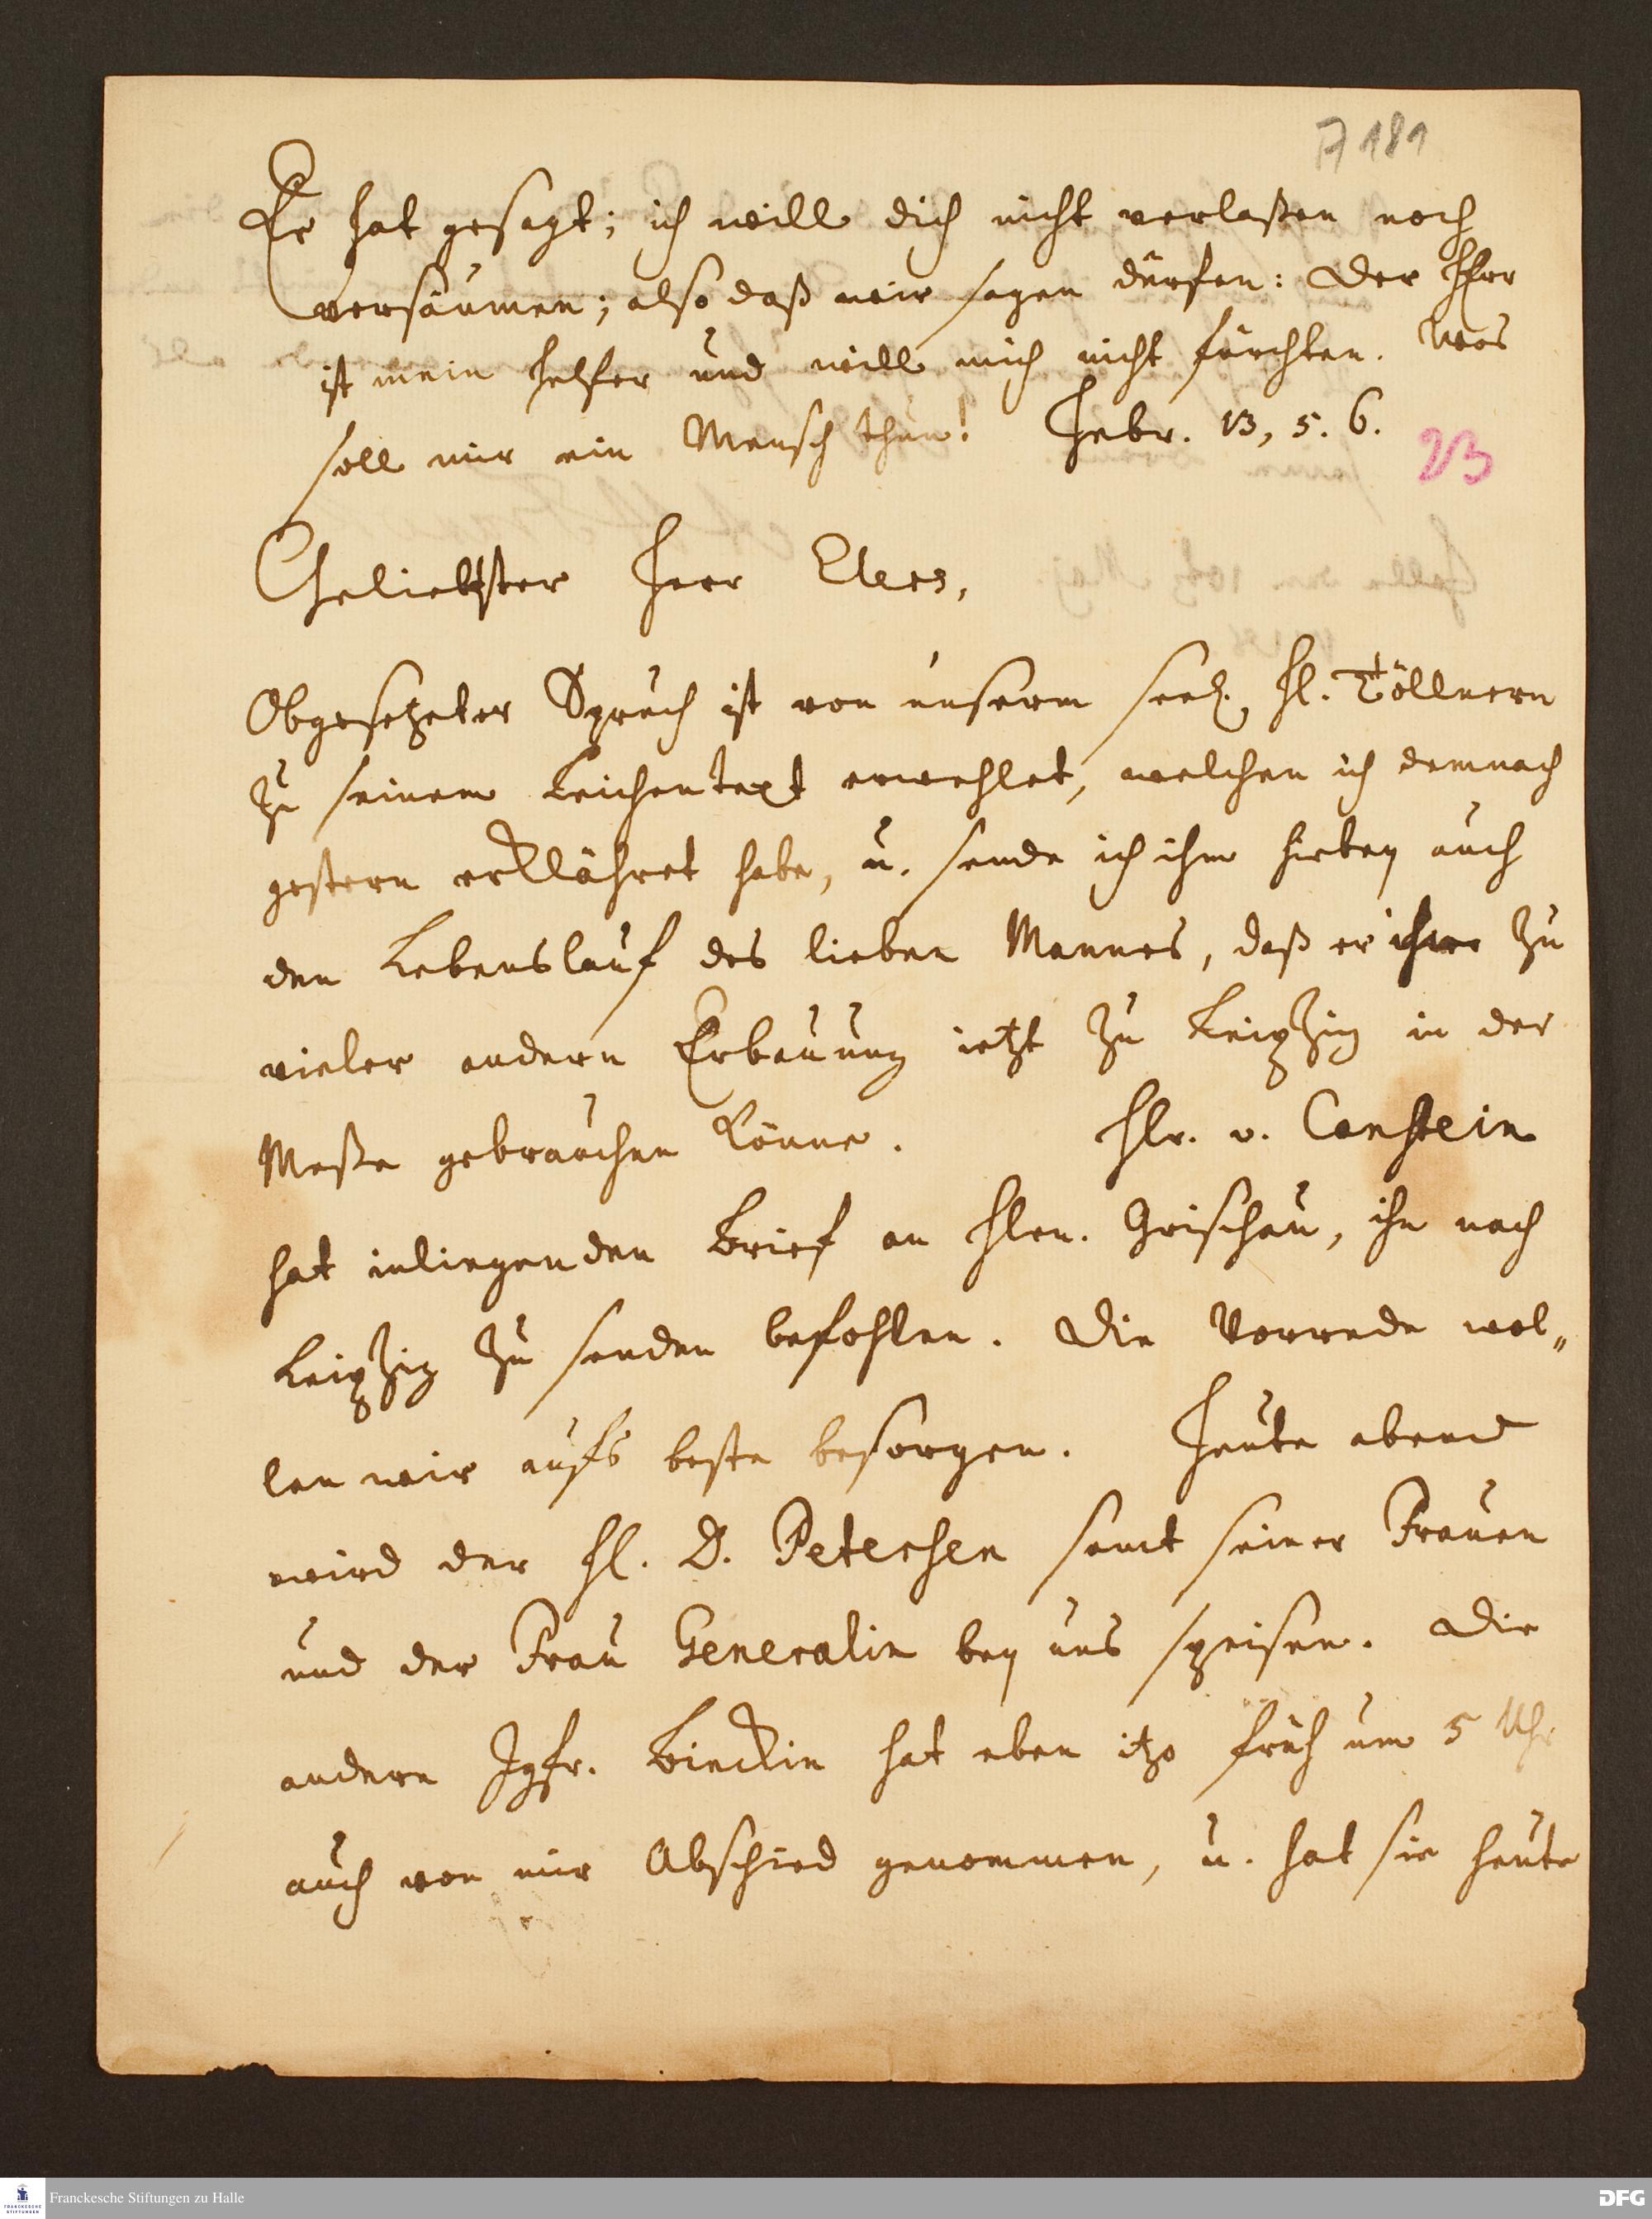 A 181
Er hat gesagt; ich will dich nicht verlaßen noch
versäumen; also daß wir sagen dürfen: Der Herr
ist mein Helfer und will mich nicht fürchten. Was
soll mir ein Mensch thun! Hebr. 13, 5. 6.
23
Geliebtster Herr Elers,
Obgesetzeter Spruch ist von unserm seel. Hl. Töllnern
zu seinem Leichentext erwehlet, welchen ich demnach
gestern erklähret habe, u. sende ich ihm hirbey auch
den Lebenslauf des lieben Mannes, daß er ihn zu
vieler andern Erbauung ietzt zu Leipzig in der
Meße gebrauchen könne. Hlr. v. Canstein
hat inliegenden Brief an Hlrn. Grischau, ihn nach
Leipzig zu senden befohlen. Die Vorrede wol„
len wir aufs beste besorgen. Heute abend
wird der Hl. D. Petersen samt seiner Frauen
und der Frau Generalin bey uns speisen. Die
andere Jgfr. Binckin hat eben itzo früh um 5 Uhr
auch von mir Abschied genommen, u. hat sie heute
Franckesche Stiftungen zu Halle
FRANCKESCHE
STIFTUNGEN
DFG